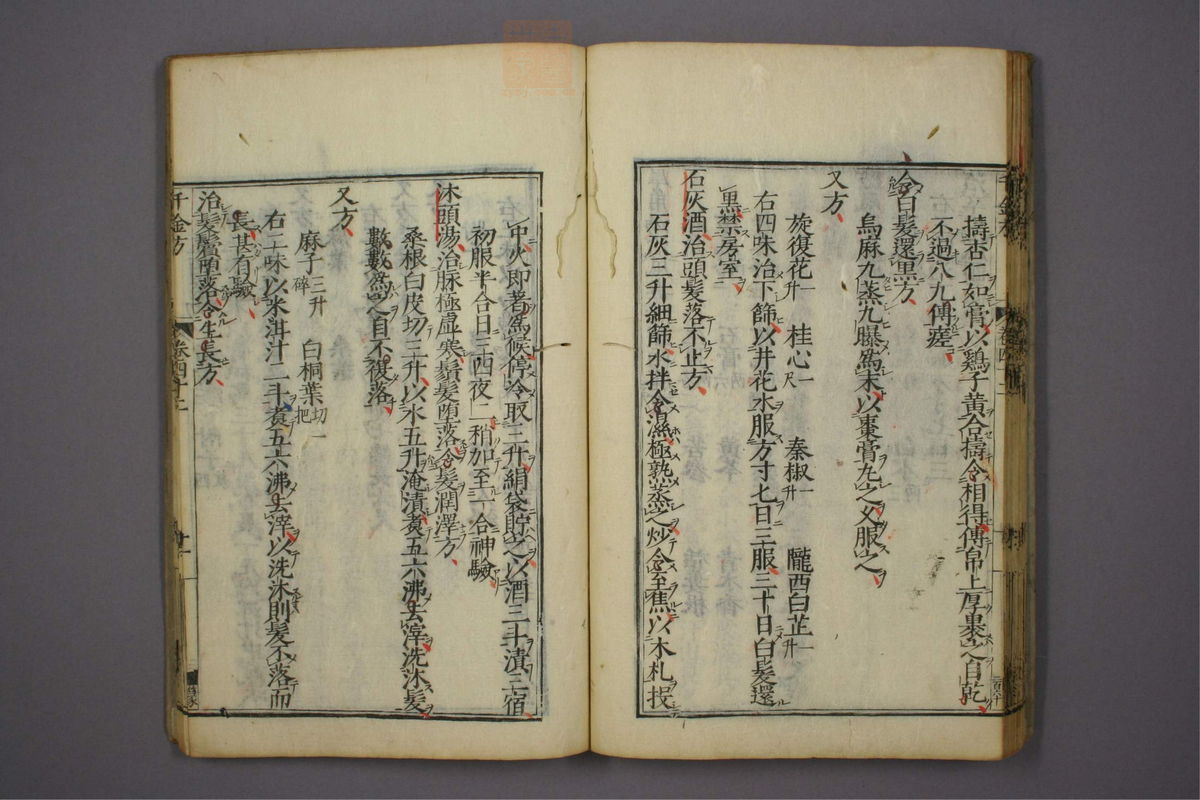 擣杏仁如膏以鷄子黃合擣令相得傅帛上厚裹之自乾
不過八九傅瘥
令白髮還黑方
烏麻九蒸九曝爲末以棗膏丸之久服之
又方
旋復花一升 桂心一尺 秦椒一升 隴西白芷一升
右四味治下篩以井花水服方寸七日三服三十日白髮還
黑禁房室
石灰酒治頭髮落不止方
石灰三升細篩水拌令濕極熟蒸之炒令至焦以木札投
中火即著爲候停冷取三升絹袋貯之以酒三斗漬三宿
初服半合日三四夜二稍加至一合神驗
沐頭湯治脈極虛寒鬚髮墮落令髮潤澤方
桑根白皮切三升以水五升淹漬煑五六沸去滓洗沐髮
數數爲之自不復落
又方
麻子三升碎 白桐葉切一把
右二味以米泔汁二斗煑五六沸去滓以洗沐則髮不落而
長甚有驗
治髮鬢墮落令生長方
千金方 卷四十二